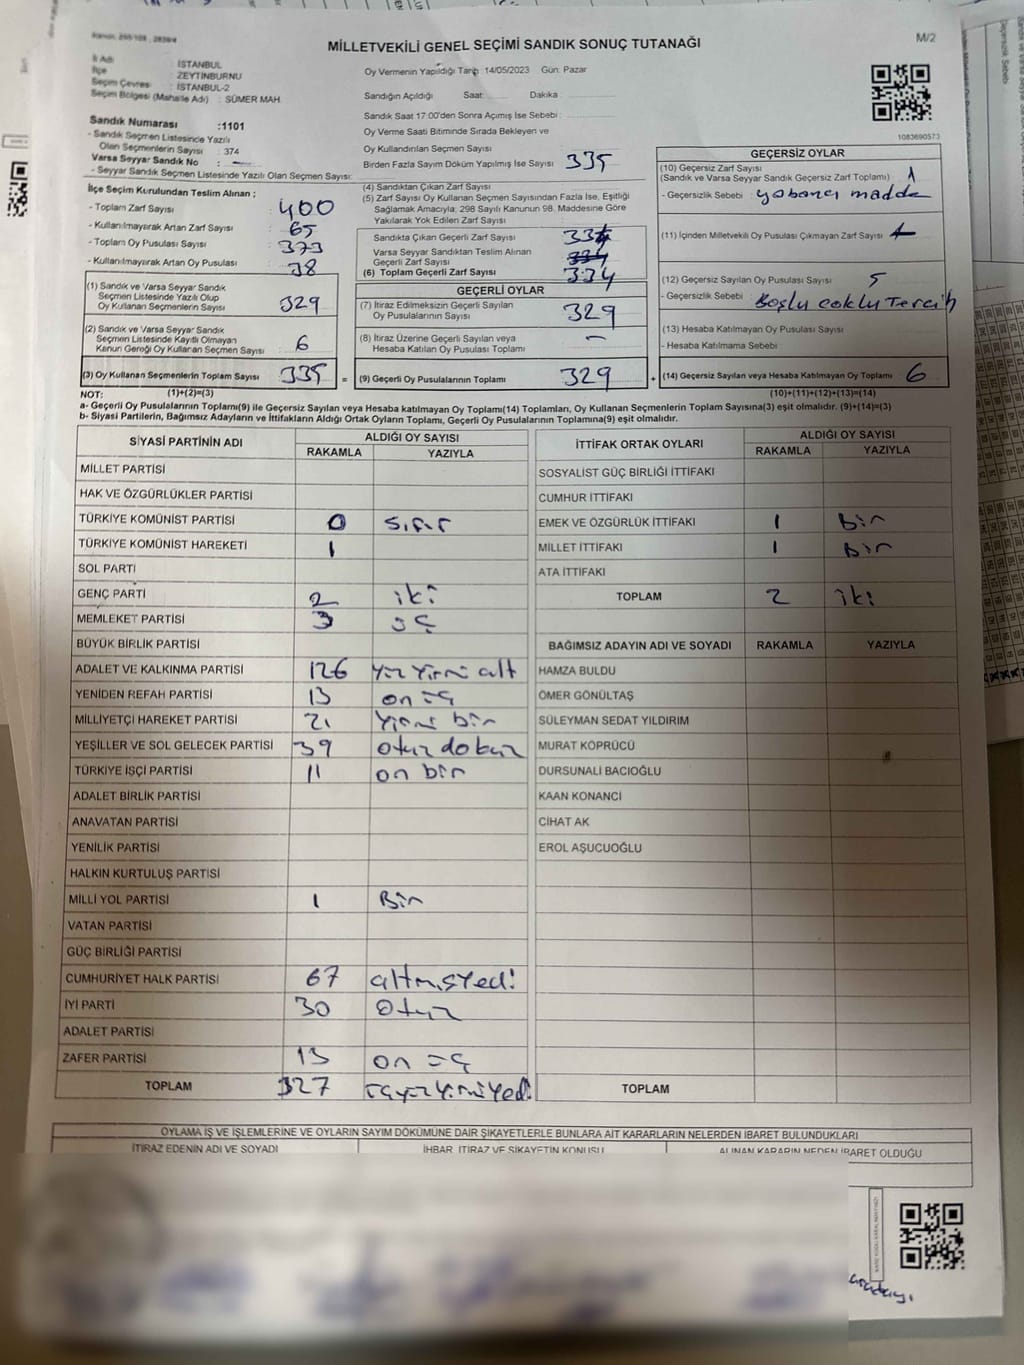 MİLLETVEKİLİ GENEL SEÇİMİ SANDIK SONUÇ TUTANAĞI
M/2
İl Adı : İSTANBUL
İlçe : ZEYTİNBURNU
Seçim Çevresi : İSTANBUL-2
Seçim Bölgesi (Mahalle Adı) : SÜMER MAH.
Oy Vermenin Yapıldığı Tarih : 14/05/2023 Gün: Pazar
Sandığın Açıldığı Saat: Dakika :
Sandık Saat 17:00'den Sonra Açımış İse Sebebi :
Oy Verme Saati Bitiminde Sırada Bekleyen ve
Oy Kullandırılan Seçmen Sayısı
Birden Fazla Sayım Döküm Yapılmış İse Sayısı 335
1083690573
Sandık Numarası :1101
- Sandık Seçmen Listesinde Yazılı
Olan Seçmenlerin Sayısı : 374
Varsa Seyyar Sandık No :
- Seyyar Sandık Seçmen Listesinde Yazılı Olan Seçmen Sayısı:
İlçe Seçim Kurulundan Teslim Alınan ;
- Toplam Zarf Sayısı : 400
- Kullanılmayarak Artan Zarf Sayısı : 65
- Toplam Oy Pusulası Sayısı : 373
- Kullanılmayarak Artan Oy Pusulası : 38
(1) Sandık ve Varsa Seyyar Sandık
Seçmen Listesinde Yazılı Olup
Oy Kullanan Seçmenlerin Sayısı 329
(2) Sandık ve Varsa Seyyar Sandık
Seçmen Listesinde Kayıtlı Olmayan
Kanun Gereği Oy Kullanan Seçmen Sayısı 6
(3) Oy Kullanan Seçmenlerin Toplam Sayısı 335 =
(4) Sandıktan Çıkan Zarf Sayısı
(5) Zarf Sayısı Oy Kullanan Seçmen Sayısından Fazla İse, Eşitliği
Sağlamak Amacıyla; 298 Sayılı Kanunun 98. Maddesine Göre
Yakılarak Yok Edilen Zarf Sayısı
Sandıkta Çıkan Geçerli Zarf Sayısı 334
Varsa Seyyar Sandıktan Teslim Alınan
Geçerli Zarf Sayısı 334
(6) Toplam Geçerli Zarf Sayısı 334
GEÇERLİ OYLAR
(7) İtiraz Edilmeksizin Geçerli Sayılan
Oy Pusulalarının Sayısı 329
(8) İtiraz Üzerine Geçerli Sayılan veya
Hesaba Katılan Oy Pusulası Toplamı -
(9) Geçerli Oy Pusulalarının Toplamı 329 +
GEÇERSİZ OYLAR
(10) Geçersiz Zarf Sayısı
(Sandık ve Varsa Seyyar Sandık Geçersiz Zarf Toplamı) 1
- Geçersizlik Sebebi : yabancı madde
(11) İçinden Milletvekili Oy Pusulası Çıkmayan Zarf Sayısı
(12) Geçersiz Sayılan Oy Pusulası Sayısı 5
- Geçersizlik Sebebi : Boşlu Çoklu Tercih
(13) Hesaba Katılmayan Oy Pusulası Sayısı
- Hesaba Katılmama Sebebi
(14) Geçersiz Sayılan veya Hesaba Katılmayan Oy Toplamı 6
NOT: (1)+(2)=(3) (10)+(11)+(12)+(13)=(14)
a- Geçerli Oy Pusulalarının Toplamı(9) ile Geçersiz Sayılan veya Hesaba katılmayan Oy Toplamı(14) Toplamları, Oy Kullanan Seçmenlerin Toplam Sayısına(3) eşit olmalıdır. (9)+(14)=(3)
b- Siyasi Partilerin, Bağımsız Adayların ve İttifakların Aldığı Ortak Oyların Toplamı, Geçerli Oy Pusulalarının Toplamına(9) eşit olmalıdır.
SİYASİ PARTİNİN ADI ALDIĞI OY SAYISI
RAKAMLA YAZIYLA
MİLLET PARTİSİ
HAK VE ÖZGÜRLÜKLER PARTİSİ
TÜRKİYE KOMÜNİST PARTİSİ 0 sıfır
TÜRKİYE KOMÜNİST HAREKETİ 1
SOL PARTİ
GENÇ PARTİ 2 iki
MEMLEKET PARTİSİ 3 üç
BÜYÜK BİRLİK PARTİSİ
ADALET VE KALKINMA PARTİSİ 126 yüz yirmi altı
YENİDEN REFAH PARTİSİ 13 on üç
MİLLİYETÇİ HAREKET PARTİSİ 21 yirmi bir
YEŞİLLER VE SOL GELECEK PARTİSİ 39 otuz dokuz
TÜRKİYE İŞÇİ PARTİSİ 11 on bir
ADALET BİRLİK PARTİSİ
ANAVATAN PARTİSİ
YENİLİK PARTİSİ
HALKIN KURTULUŞ PARTİSİ
MİLLİ YOL PARTİSİ 1 Bir
VATAN PARTİSİ
GÜÇ BİRLİĞİ PARTİSİ
CUMHURİYET HALK PARTİSİ 67 altmışyedi
İYİ PARTİ 30 otuz
ADALET PARTİSİ
ZAFER PARTİSİ 13 on üç
TOPLAM 327 üçyüzyirmiyedi
İTTİFAK ORTAK OYLARI ALDIĞI OY SAYISI
RAKAMLA YAZIYLA
SOSYALİST GÜÇ BİRLİĞİ İTTİFAKI
CUMHUR İTTİFAKI
EMEK VE ÖZGÜRLÜK İTTİFAKI 1 bir
MİLLET İTTİFAKI 1 bir
ATA İTTİFAKI
TOPLAM 2 iki
BAĞIMSIZ ADAYIN ADI VE SOYADI RAKAMLA YAZIYLA
HAMZA BULDU
ÖMER GÖNÜLTAŞ
SÜLEYMAN SEDAT YILDIRIM
MURAT KÖPRÜCÜ
DURSUNALİ BACIOĞLU
KAAN KONANCİ
CİHAT AK
EROL AŞUCUOĞLU
TOPLAM
OYLAMA İŞ VE İŞLEMLERİNE VE OYLARIN SAYIM DÖKÜMÜNE DAİR ŞİKAYETLERLE BUNLARA AİT KARARLARIN NELERDEN İBARET BULUNDUKLARI
İTİRAZ EDENİN ADI VE SOYADI İHBAR, İTİRAZ VE ŞİKAYETİN KONUSU ALINAN KARARIN NEDEN İBARET OLDUĞU